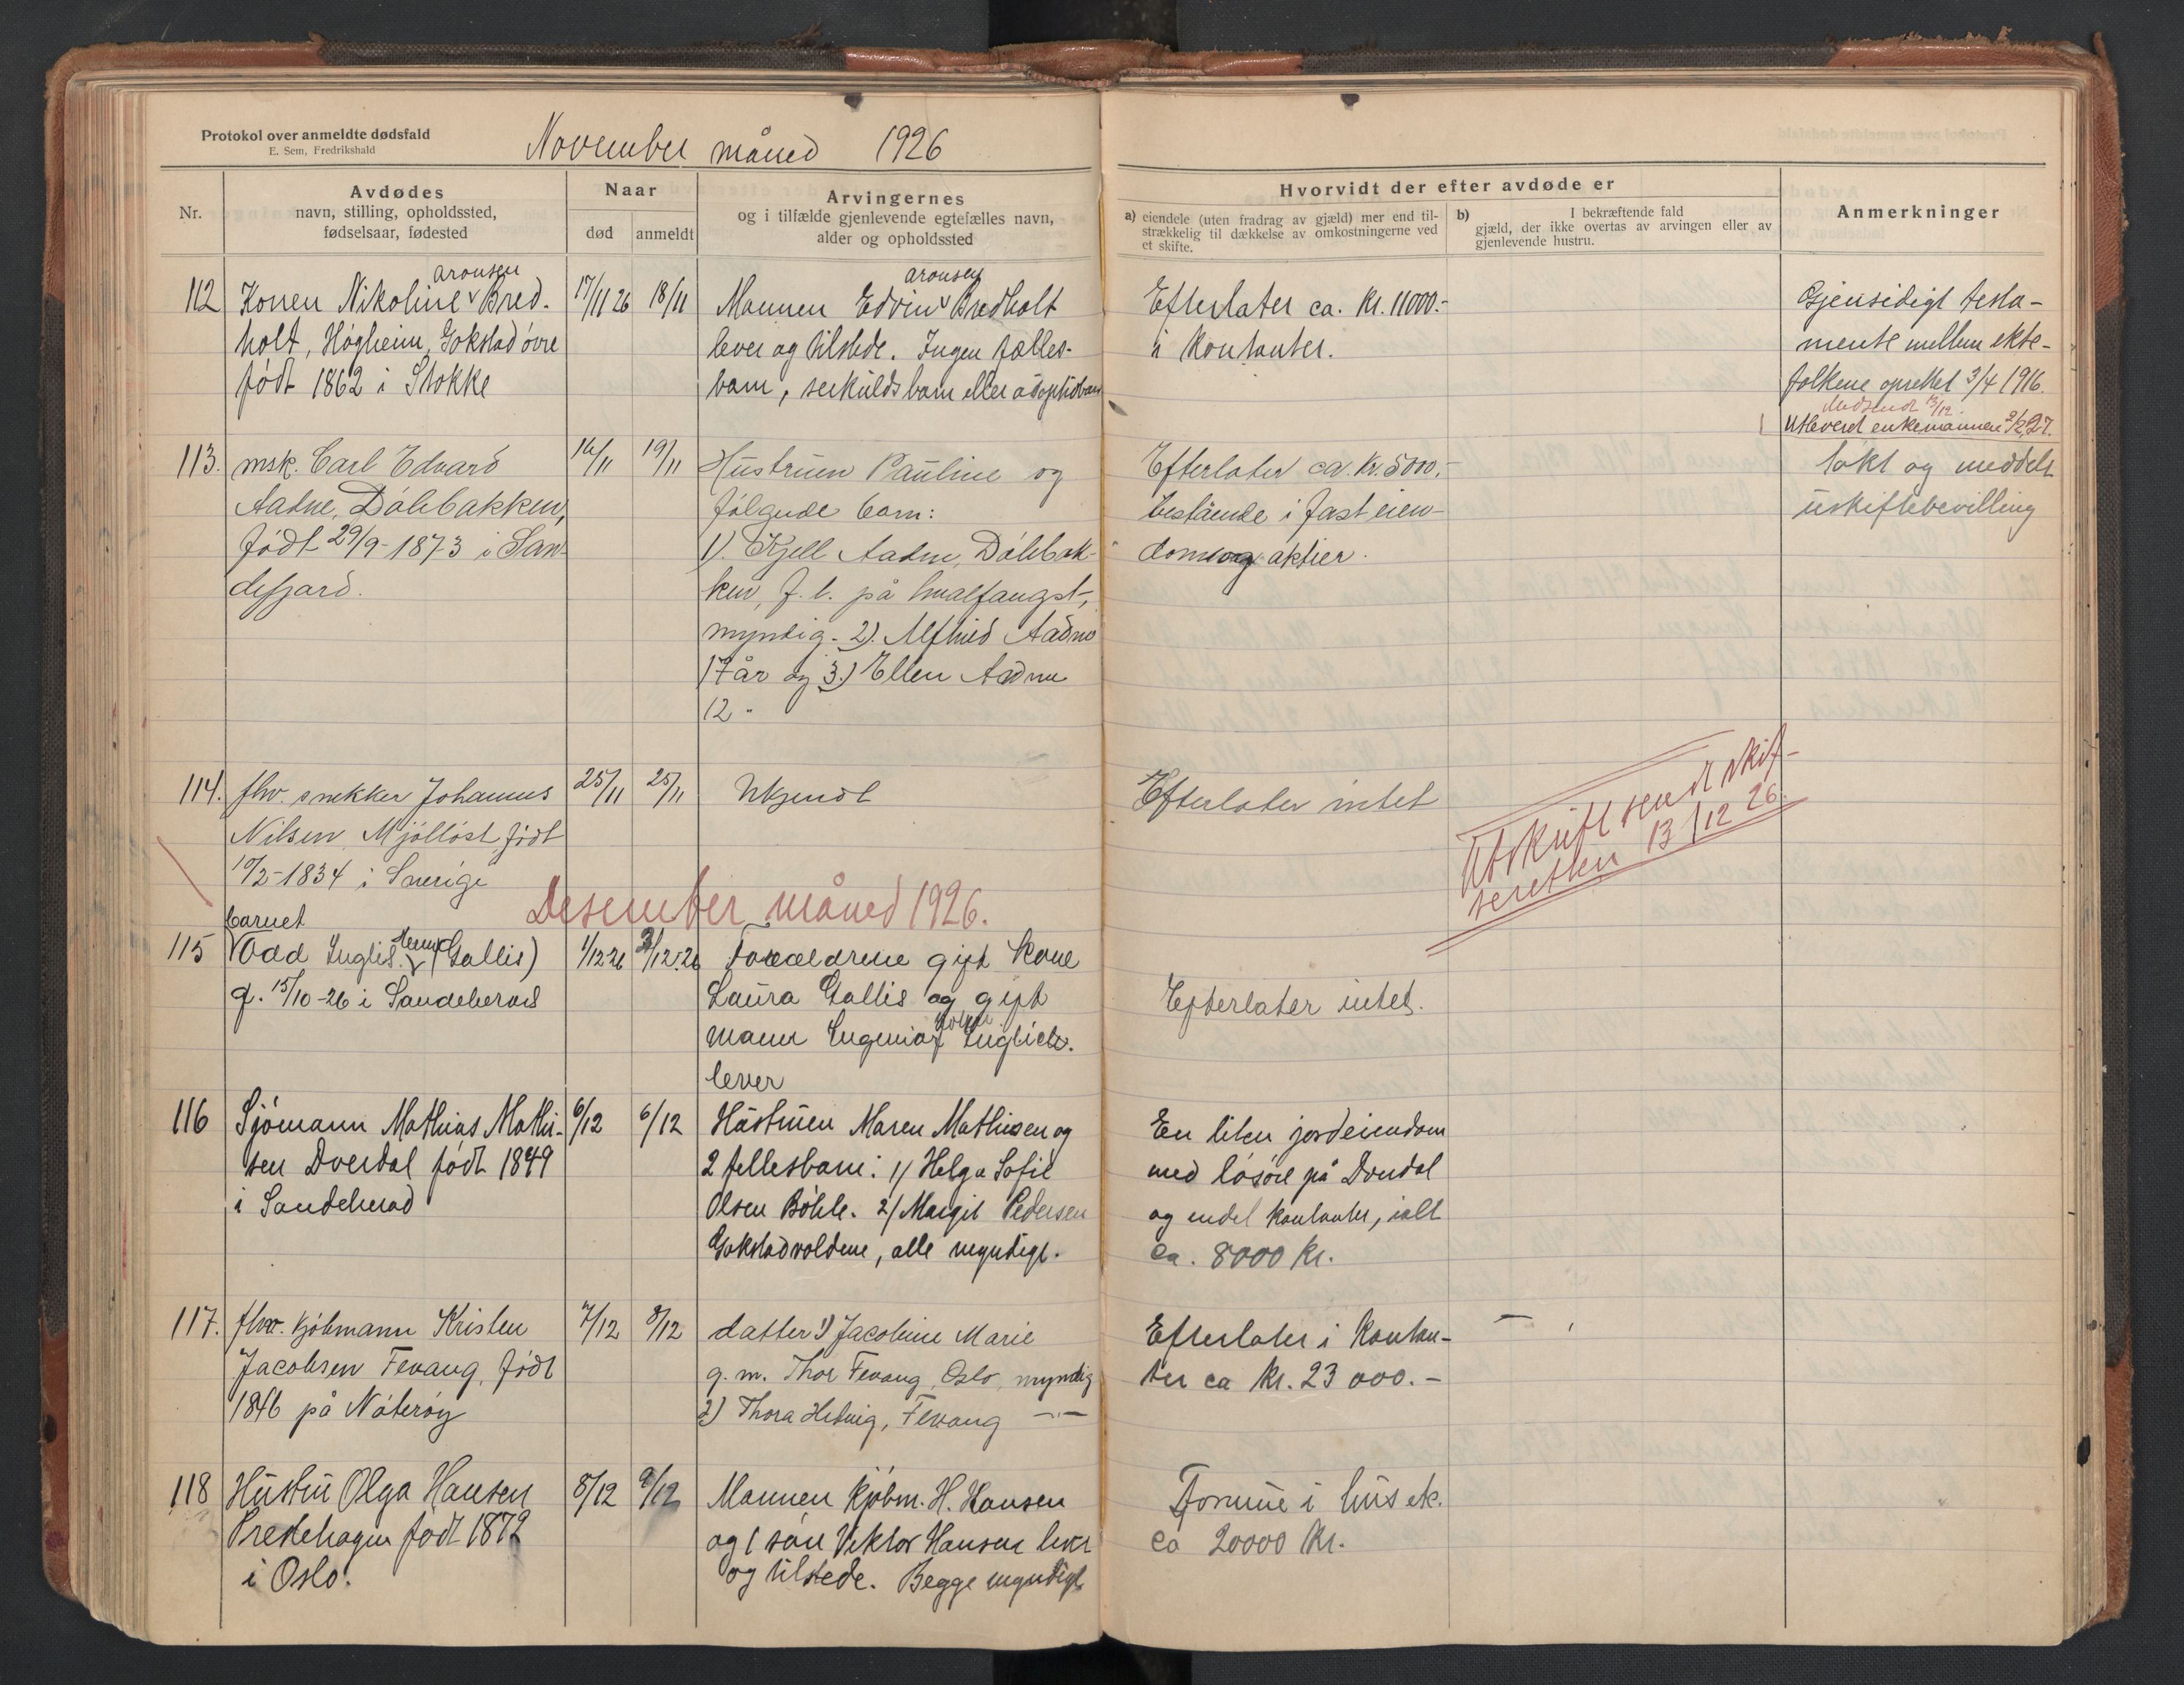 Protokol over anmeldte dødsfald
E. Sem, Fredrikshald
November måned 1926
Nr.
Avdødes
navn, stilling, opholdssted,
fødselsaar, fødested
Naar
død
anmeldt
Arvingernes
og i tilfælde gjenlevende egtefælles navn,
alder og opholdssted
Hvorvidt der efter avdøde er
a) eiendele (uten fradrag av gjæld) mer end til-
strækkelig til dækkelse av omkostningerne ved
et skifte.
b) I bekræftende fald
gjæld, der ikke overtas av arvingen eller av
gjenlevende hustru.
Anmerkninger
112
Aronsen
Konen Nikoline v Bred-
holt, Högheim, Gokstad övre
född 1862 i Stokke
17/11 26
18/11
Aronsen
Mannen Edvin v Bredholt
lever og tilstede. Ingen fælles-
barn, serkuldsbarn eller adoptivbarn
Efterlater ca. Kr. 11000.-
i Kontanter.
Gjensidigt testa-
mente mellem ekte-
folkene oprettet 3/4 1916.
Medsendt 13/12.
Utleveret enkemannen 2/2 27.
113.
msk. Carl Edvard
Aadne, Dölebakken,
födt 29/9-1873 i San-
defjord.
14/11
19/11
Hustruen Pauline og
fölgende barn:
1). Kjell Aadne, Dölebak-
ken, f. t. på hvalfangst,
myndig. 2). Alfhild Aadne
17 år og 3.) Ellen Aadne
12 "
Efterlater ca. Kr. 5000,-
bestående i fast eien-
dom og aktier.
Søkt og meddelt
uskiftebevilling
114.
fhv. snekker Johannes
Nilsen, Mjölløst, födt
10/2-1834 i Sverige
25/11
25/11
Ukjendt
Efterlater intet
Utskrift sendt skif-
teretten 13/12 26.
Desember måned 1926.
115
barnet
Odd Inglis (Gallis)
f. 15/10-26 i Sandeherad
1/12 26
3/12 26
Forældrene gift kone
Laura Gallis og gift
mann Ingenior Inglich.
lever
Efterlater intet.
116
Sjömann Mathias Mathi-
sen Dverdal födt 1849
i Sandeherad
6/12
6/12
Hustruen Maren Mathisen og
2 fellesbarn: 1/ Helga Sofie
Olsen Böhle. 2/ Margit Pedersen
Gokstadvoldene, alle myndige.
En liten jordeiendom
med lösöre på Dverdal
og endel kontanter, ialt
ca. 8000 Kr.
117.
fhv. kjöbmann Kristen
Jacobsen Fevang, födt
1846 på Nöteröy
7/12
8/12
datter 1) Jacobine Marie
g. m. Thor Fevang, Oslo, myndig
2) Thora Hedvig, Fevang — " —
Efterlater i Kontan-
ter ca Kr. 23 000.-
—
118
Hustru Olga Hansen
Prestehagen födt 1872
i Oslo.
8/12
9/12
Mannen Kjöbm. H. Hansen
og 1 sön Viktor Hansen lever
og tilstede. Begge myndige
Formue i hus etc.
ca 20000 Kr.